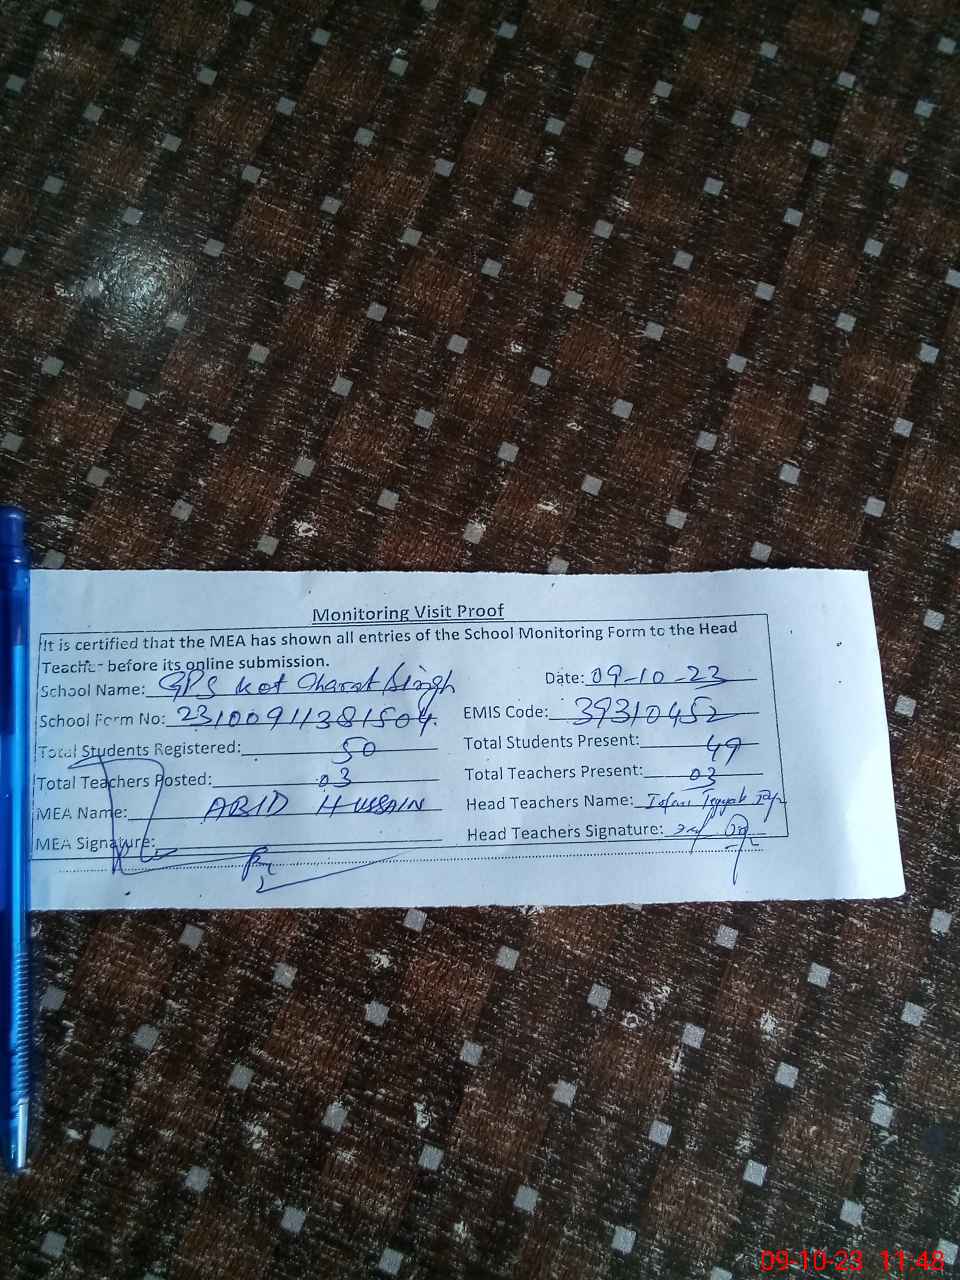 Monitoring Visit Proof
It is certified that the MEA has shown all entries of the School Monitoring Form to the Head
Teacher before its online submission.
School Name: GPS Kot Charat Singh Date: 09-10-23
School Form No: 23100911381504 EMIS Code: 39310452
Total Students Registered: 50 Total Students Present: 49
Total Teachers Posted: 03 Total Teachers Present: 03
MEA Name: ABID HUSSAIN Head Teachers Name:
MEA Signature: Head Teachers Signature:
09-10-23 11:48